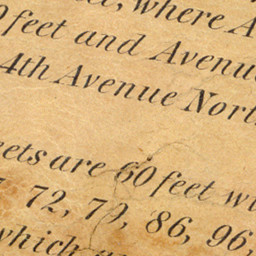 where A
feet and Avenue
4th Avenue North
eets are 60 feet wi
72, 79, 86, 96,
which